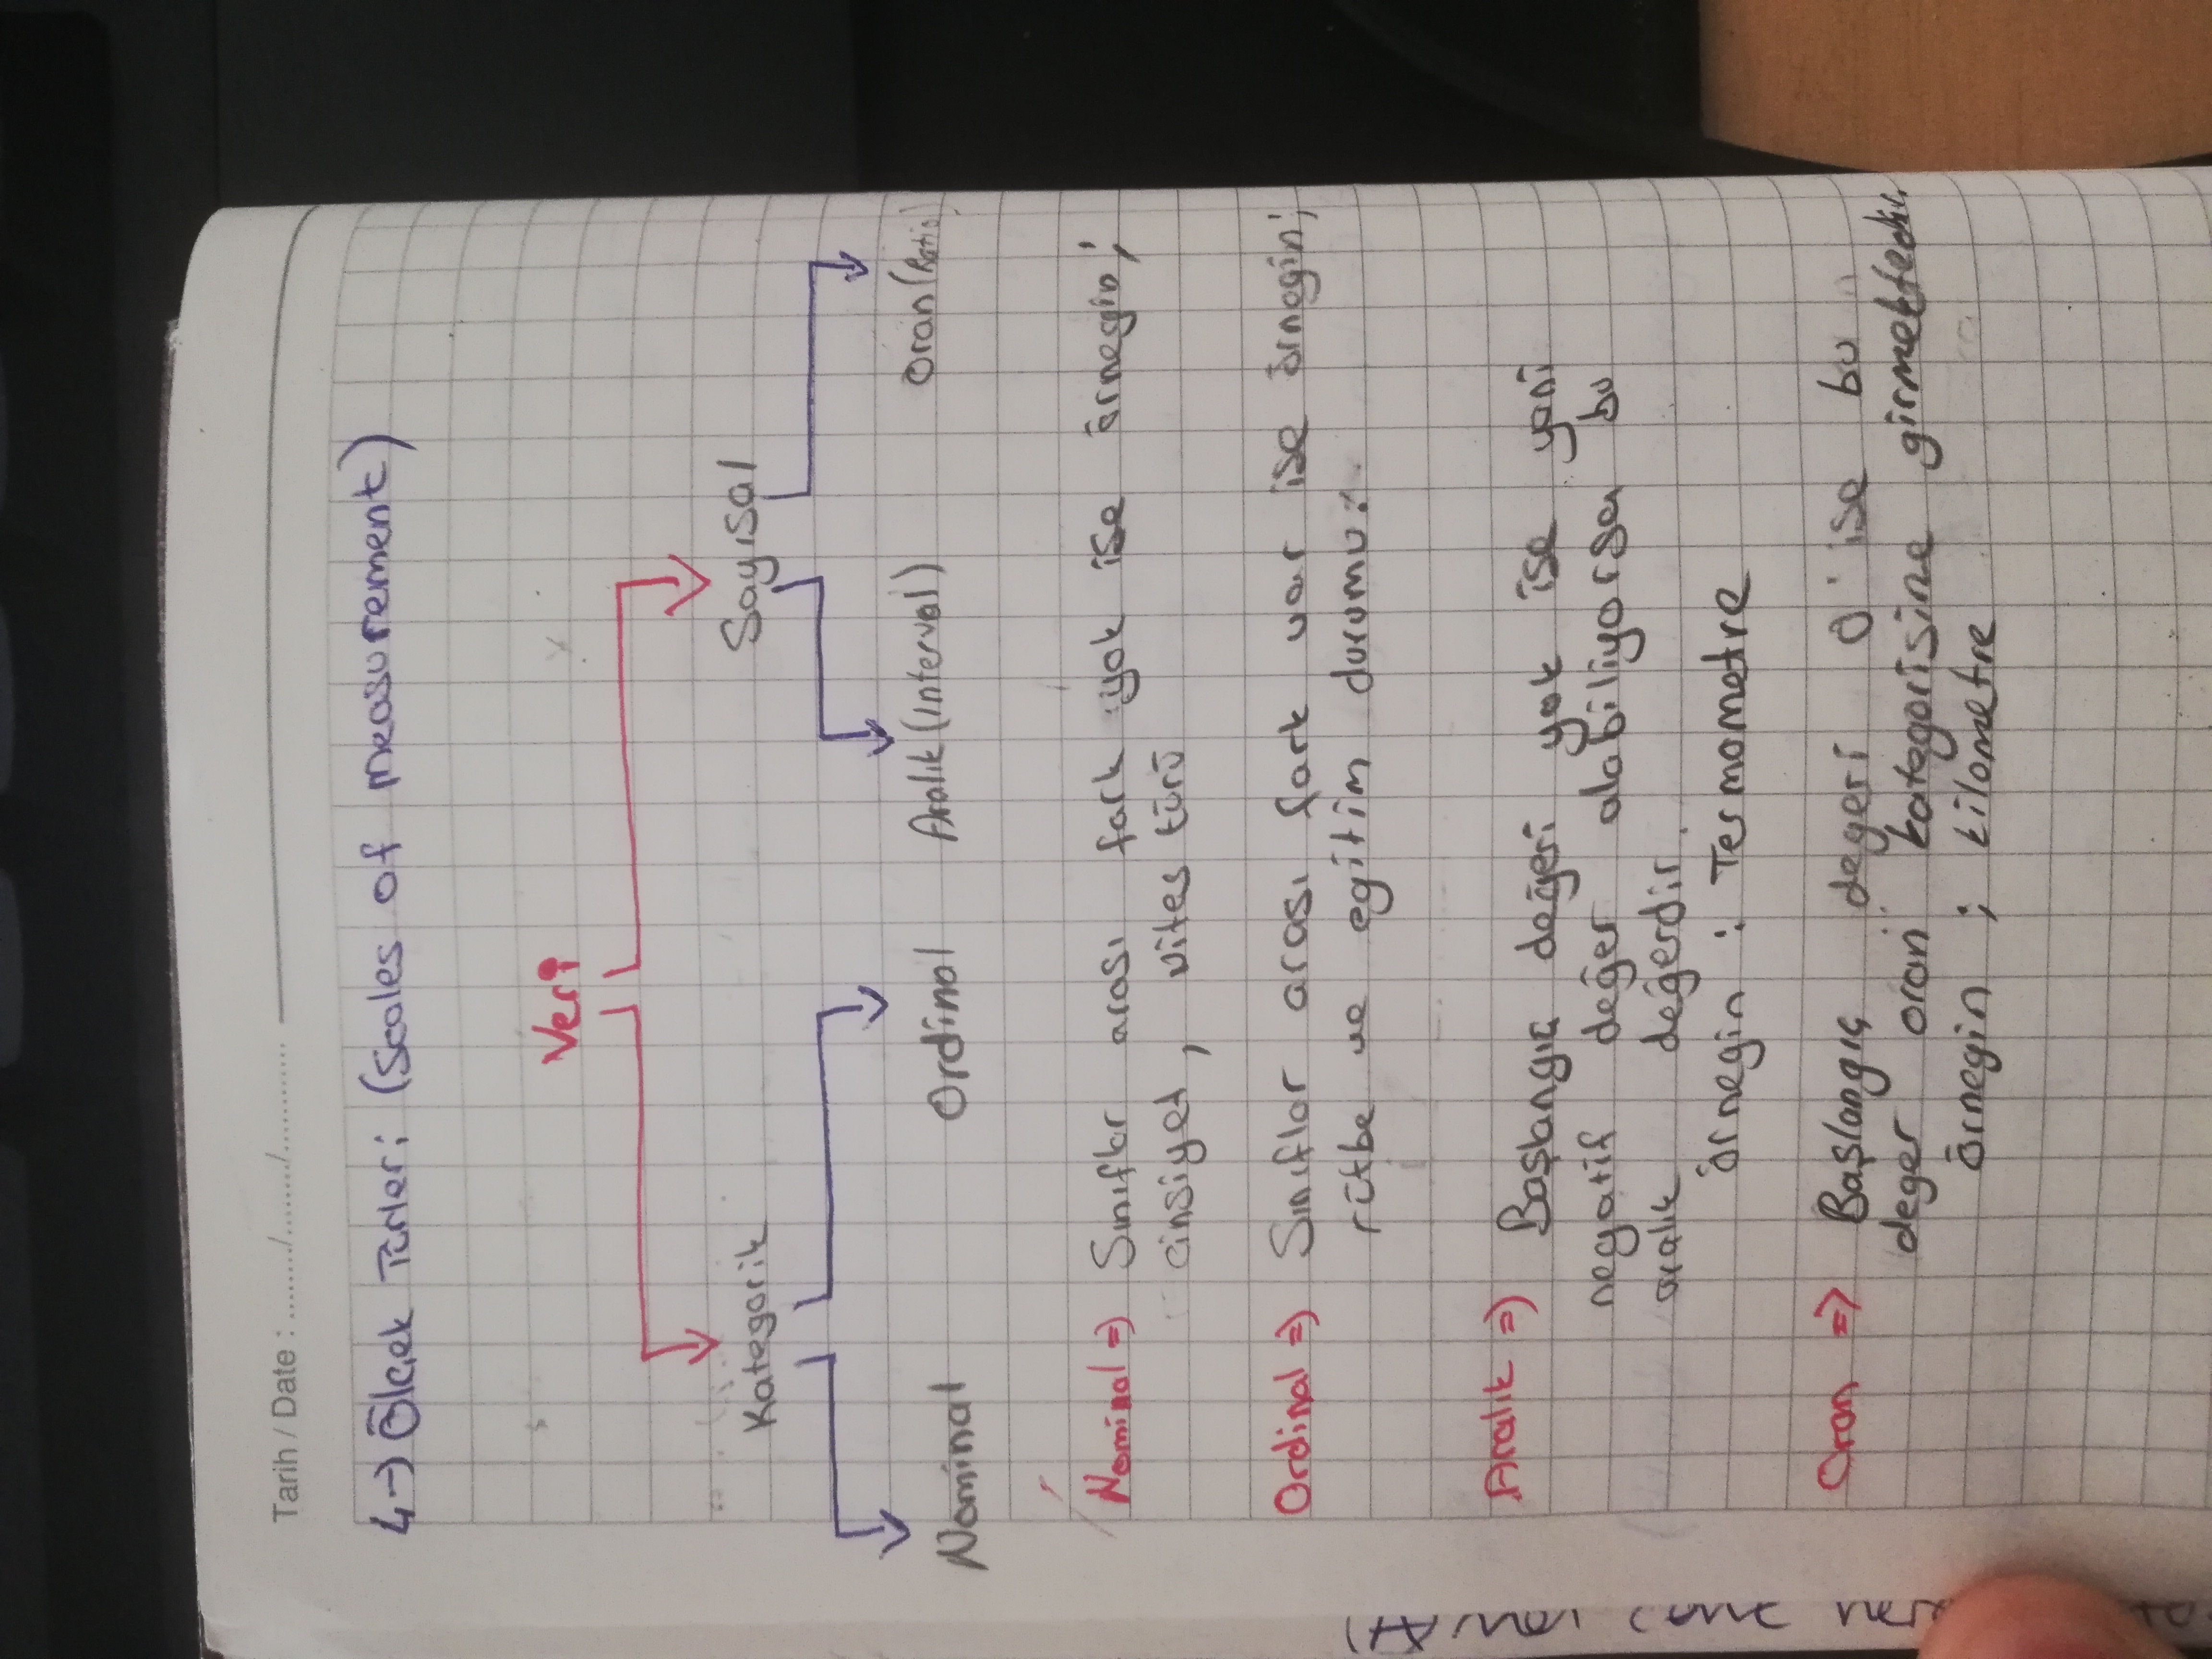 Tarih / Date : ......../......../...........
4-) Ölçek Türleri (Scales of measurement)
Veri
Kategorik Sayısal
Nominal Ordinal Aralık (Interval) Oran (Ratio)
Nominal => Sınıflar arası fark yok ise örnegin;
cinsiyet, vites türü
Ordinal => Sınıflar arası fark var ise örnegin;
rütbe ve egitim durumu.
Aralık => Başlangıç değeri yok ise yani
negatif değer alabiliyorsa bu
aralık değerdir.
örnegin : Termometre
Oran => Başlangıç degeri 0 ise bu
deger oran kategorisine girmektedir.
örnegin ; kilometre